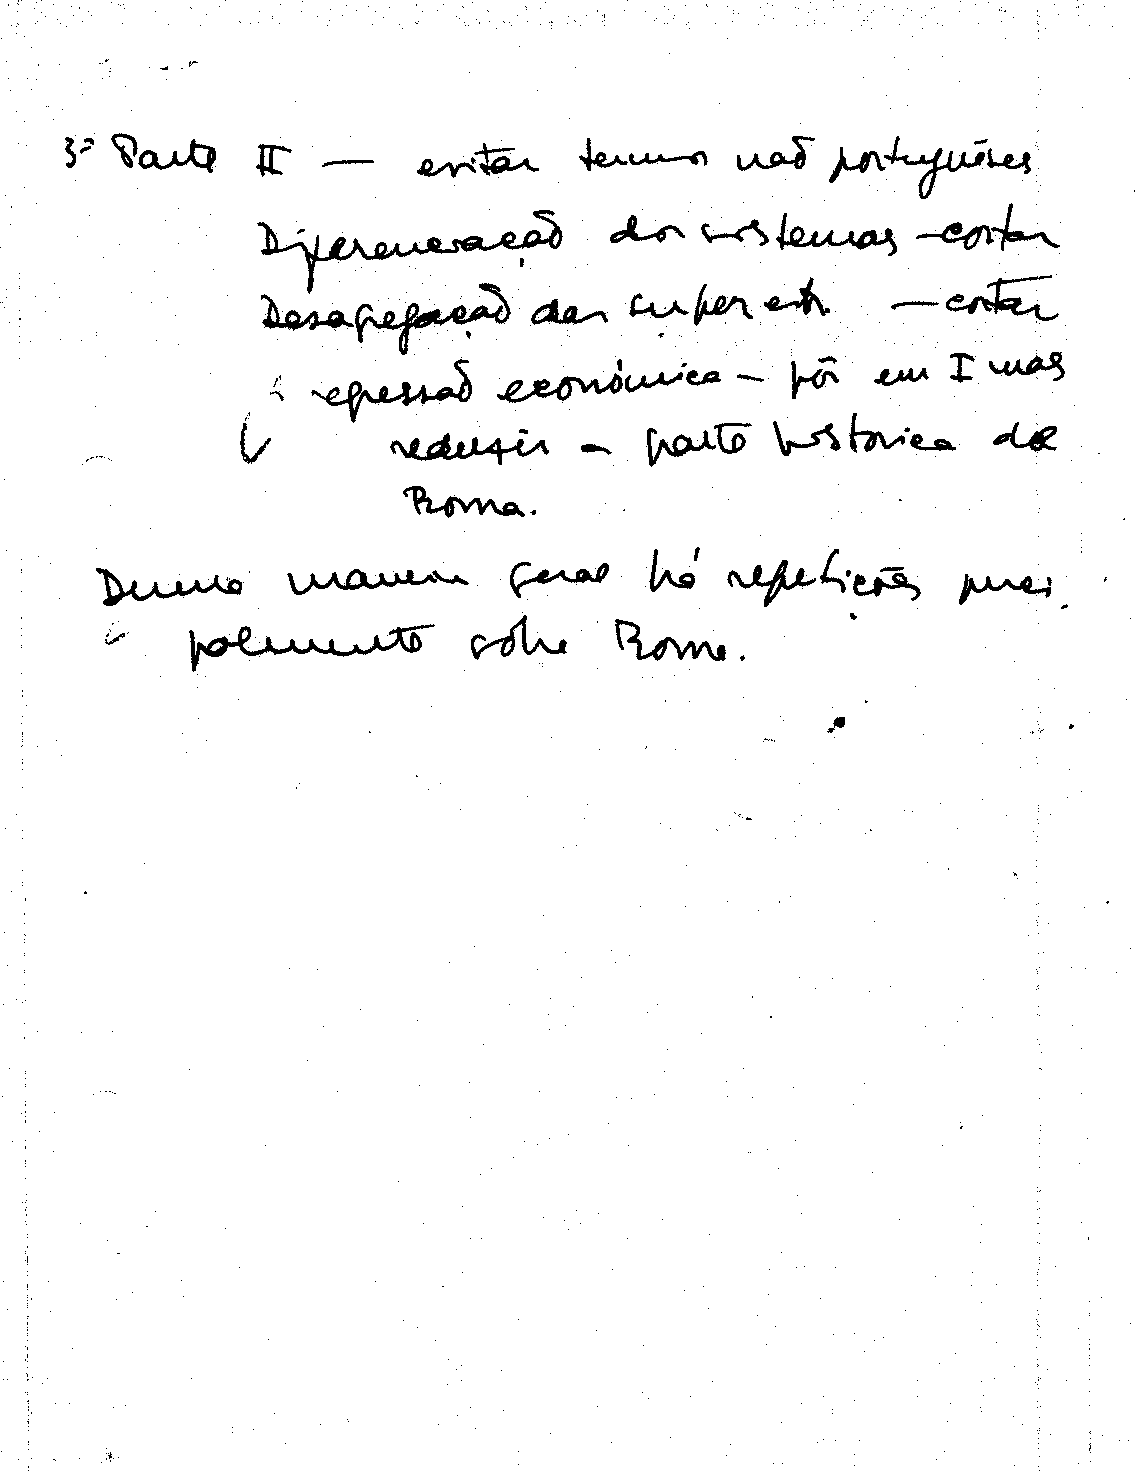 3ª Parte II — evitar termos não portuguêses
Diferenciação dos sistemas — cortar
Desagregação das superestr. — cortar
regressão económica — pôr em I mas
reduzir a parte histórica de
Roma.
Duma maneira geral há repetições princi
palmente sôbre Roma.